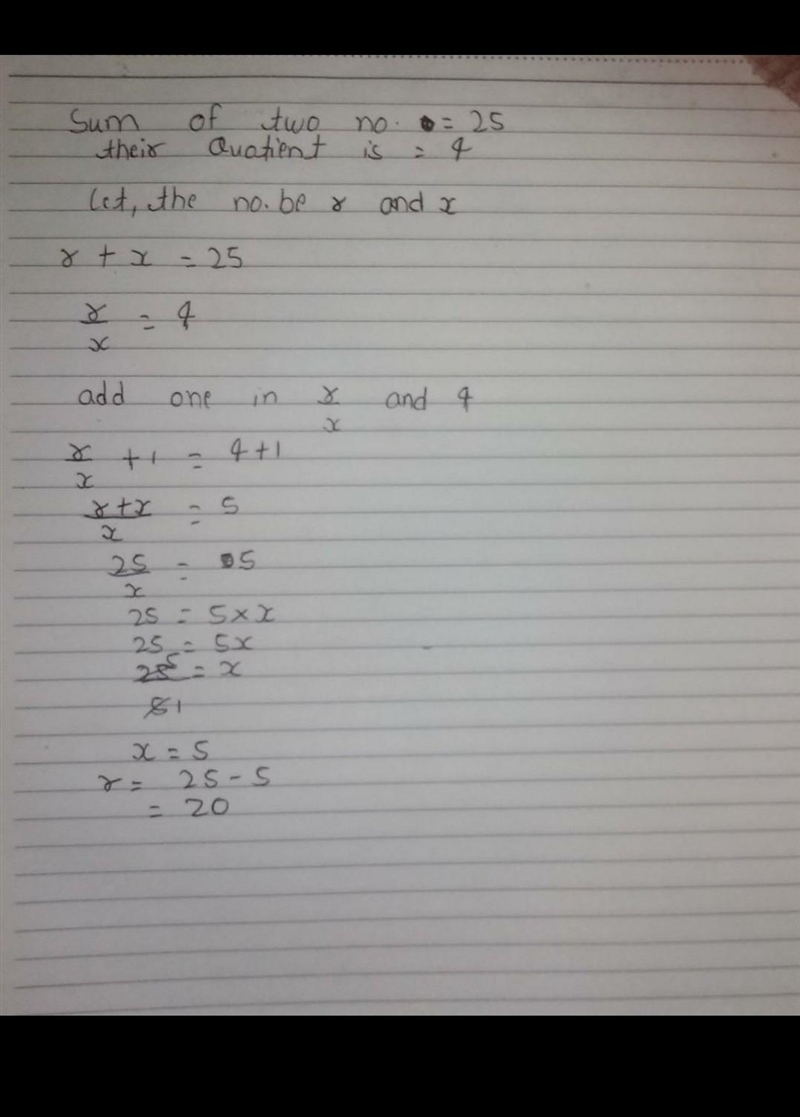 Sum of two no. = 25
their Quatient is = 4
Let, the no. be r and x
r + x = 25
r/x = 4
add one in r/x and 4
r/x + 1 = 4+1
r+x/x = 5
25/x = 5
25 = 5 × x
25 = 5x
25 5/5 1 = x
x = 5
r = 25 - 5
= 20